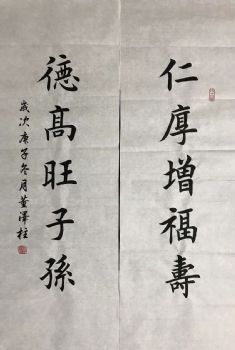 仁厚增福壽
德高旺子孫
歲次庚子冬月黃澤柱